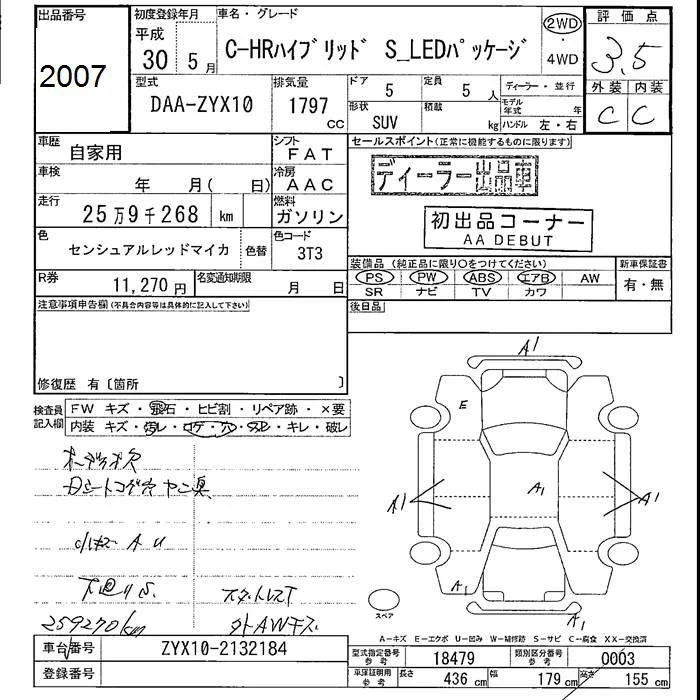 出品番号
2007
初度登録年月
平成
30 5月
車名・グレード
C-HRハイブリッド S_LEDパッケージ
2WD
・
4WD
評価点
3.5
外装 内装
C C
型式
DAA-ZYX10
排気量
1797
cc
ドア
5
定員
5 人
形状
SUV
積載
kg
ディーラー・並行
モデル年式 年
ハンドル 左・右
車歴
自家用
シフト
FAT
車検
年 月( 日)
冷房
AAC
走行
25万9千268 km
燃料
ガソリン
色
センシュアルレッドマイカ
色替
色コード
3T3
R券
11,270円
名変通知期限
月 日
セールスポイント(正常に機能するものに限ります)
ディーラー出品車
初出品コーナー
AA DEBUT
装備品(純正品に限り○をつけてください)
PS PW ABS エアB AW
SR ナビ TV カワ
新車保証書
有・無
後日品
注意事項申告欄(不具合内容等は具体的に記入して下さい)
修復歴 有〔箇所 〕
検査員記入欄
FW キズ・飛石・ヒビ割・リペア跡・×要
内装 キズ・汚レ・コゲ・穴・スレ・キレ・破レ
A U
下廻りS
259270km
外AWキズ
A1
E
A1
A1
A1
A1
A1
スペア
A-キズ E-エクボ U-凹み W-補修跡 S-サビ C-腐食 XX-交換済
車台番号
ZYX10-2132184
登録番号
型式指定番号
参考
18479
類別区分番号
参考
0003
車庫証明用
参考
長さ
436 cm
幅
179 cm
高さ
155 cm